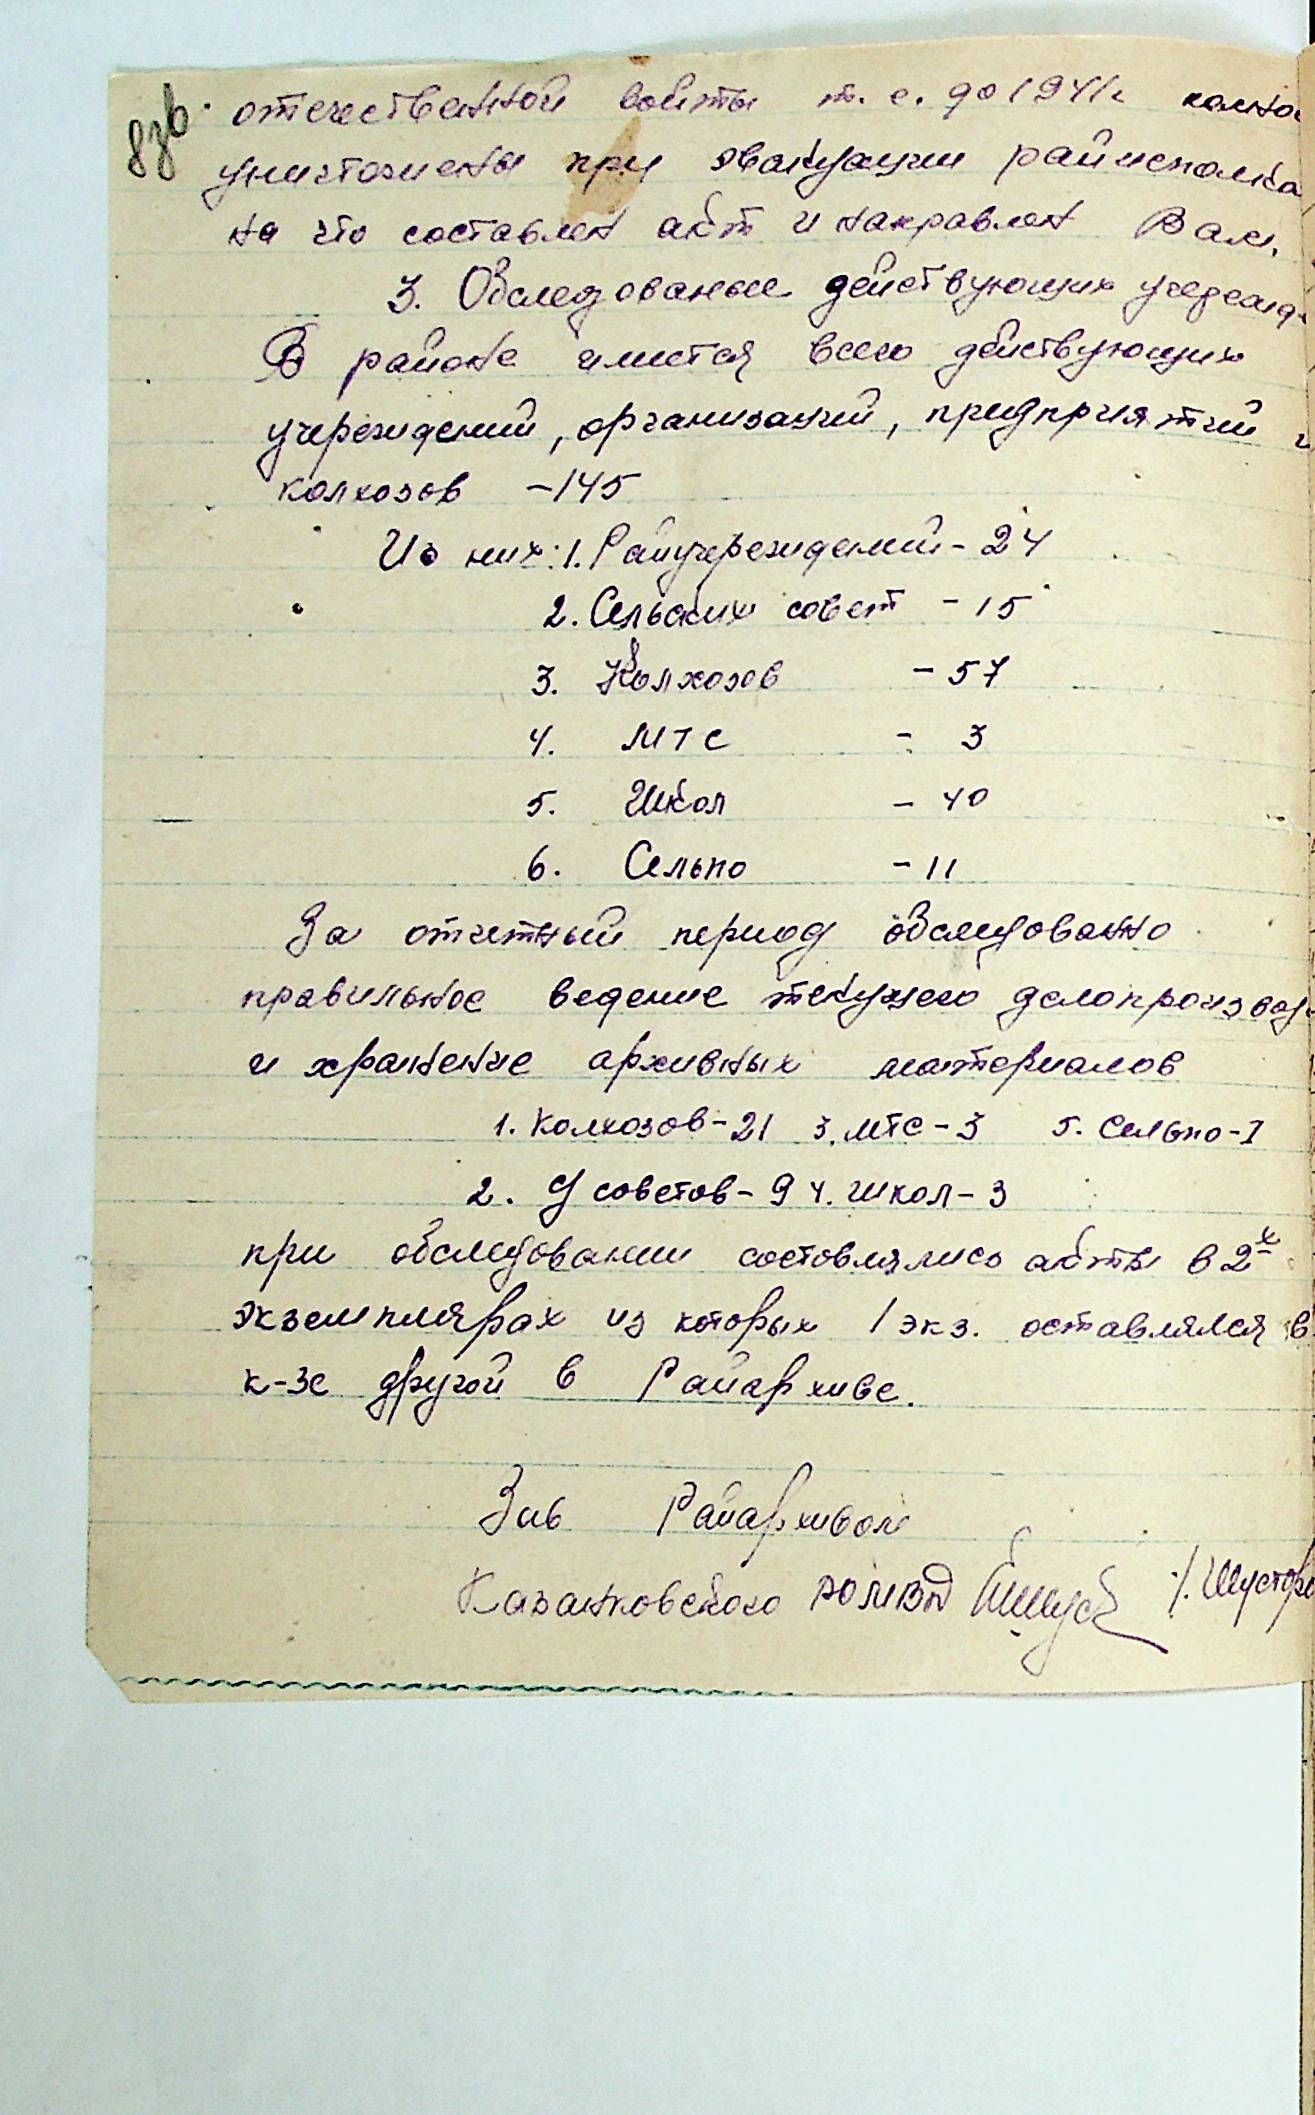 8зв.
отечественной войты т. е. до 1941г
уничтожены при эвакуации райисполка
на что составлен акт и направлен Вам.
3. Обследованые действующих учережд-
В районе имется всего действующих
учереждений, организаций, предприятий и
колхозов -145
Из них: 1. Райучереждений - 24
2. Сельских совет - 15
3. Колхозов - 57
4. МТС - 3
5. Школ - 40
6. Сельпо - 11
За отчетный период обследованно
правильное ведение текущего делопроизвод
и хранение архивных материалов
1. Колхозов - 21 3. МТС - 3 5. Сельпо - 1
2. С/советов - 9 4. Школ - 3
при обследовании состовлялись акты в 2х
экземплярах из которых 1 экз. оставлялся в
к-зе другой в Райархиве.
Зав Райархивом
Казанковского РОМВД /. Шусторо